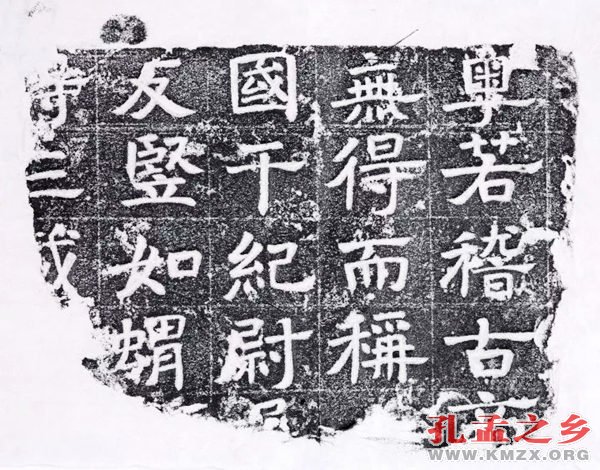 粤若稽古
無得而稱
國干紀尉
友豎如蝟
三
孔孟之乡
WWW.KMZX.ORG